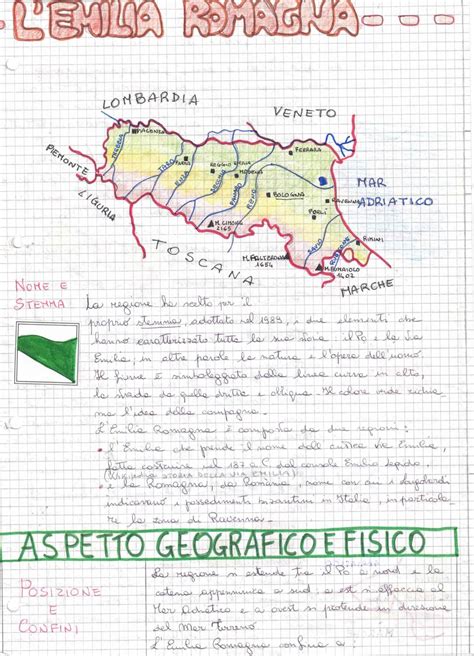 L'EMILIA ROMAGNA
LOMBARDIA
VENETO
PIACENZA
FERRARA
PIEMONTE
TREBBIA
TARO
PARMA
REGGIO EMILIA
MODENA
MAR
ADRIATICO
LIGURIA
BOLOGNA
RAVENNA
FORLÌ
M. CIMONE
2165
RIMINI
TOSCANA
M. FALTERONA
1654
SAVIO
M. FUMAIOLO
1407
MARCHE
NOME E
STEMMA
La regione ha scelto per il
proprio stemma, adottato nel 1989, i due elementi che
hanno caratterizzato tutta la sua storia: il Po e la via
Emilia; in altre parole la natura e l'opera dell'uomo.
Il fiume è simboleggiato dalla linea curva in alto,
la strada da quella dritta e obliqua. Il colore verde richia-
ma l'idea della campagna.
L'Emilia Romagna è composta da due regioni:
• l'Emilia che prende il nome dall'antica via Emilia,
fatta costruire nel 187 a.C. dal console Emilio Lepido.
STORIA DELLA VIA EMILIA
• e la Romagna, da Romània, nome con cui i Longobardi
indicavano i possedimenti bizantini in Italia, in particola-
re la zona di Ravenna.
ASPETTO GEOGRAFICO E FISICO
POSIZIONE
E
CONFINI
La regione si estende tra il Po a nord e la
catena appenninica a sud; a est si affaccia al
Mar Adriatico e a ovest si protende in direzione
del Mar Tirreno.
L'Emilia Romagna confina a: